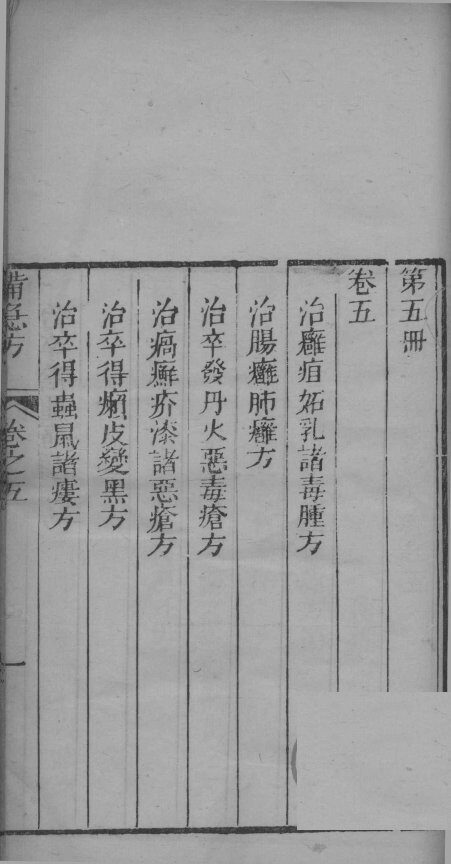 第五冊
卷五
治癰疽妬乳諸毒腫方
治腸癰肺癰方
治卒發丹火惡毒瘡方
治瘑癬疥漆諸惡瘡方
治卒得癩皮變黑方
治卒得蟲鼠諸瘻方
備急方
卷之五
一